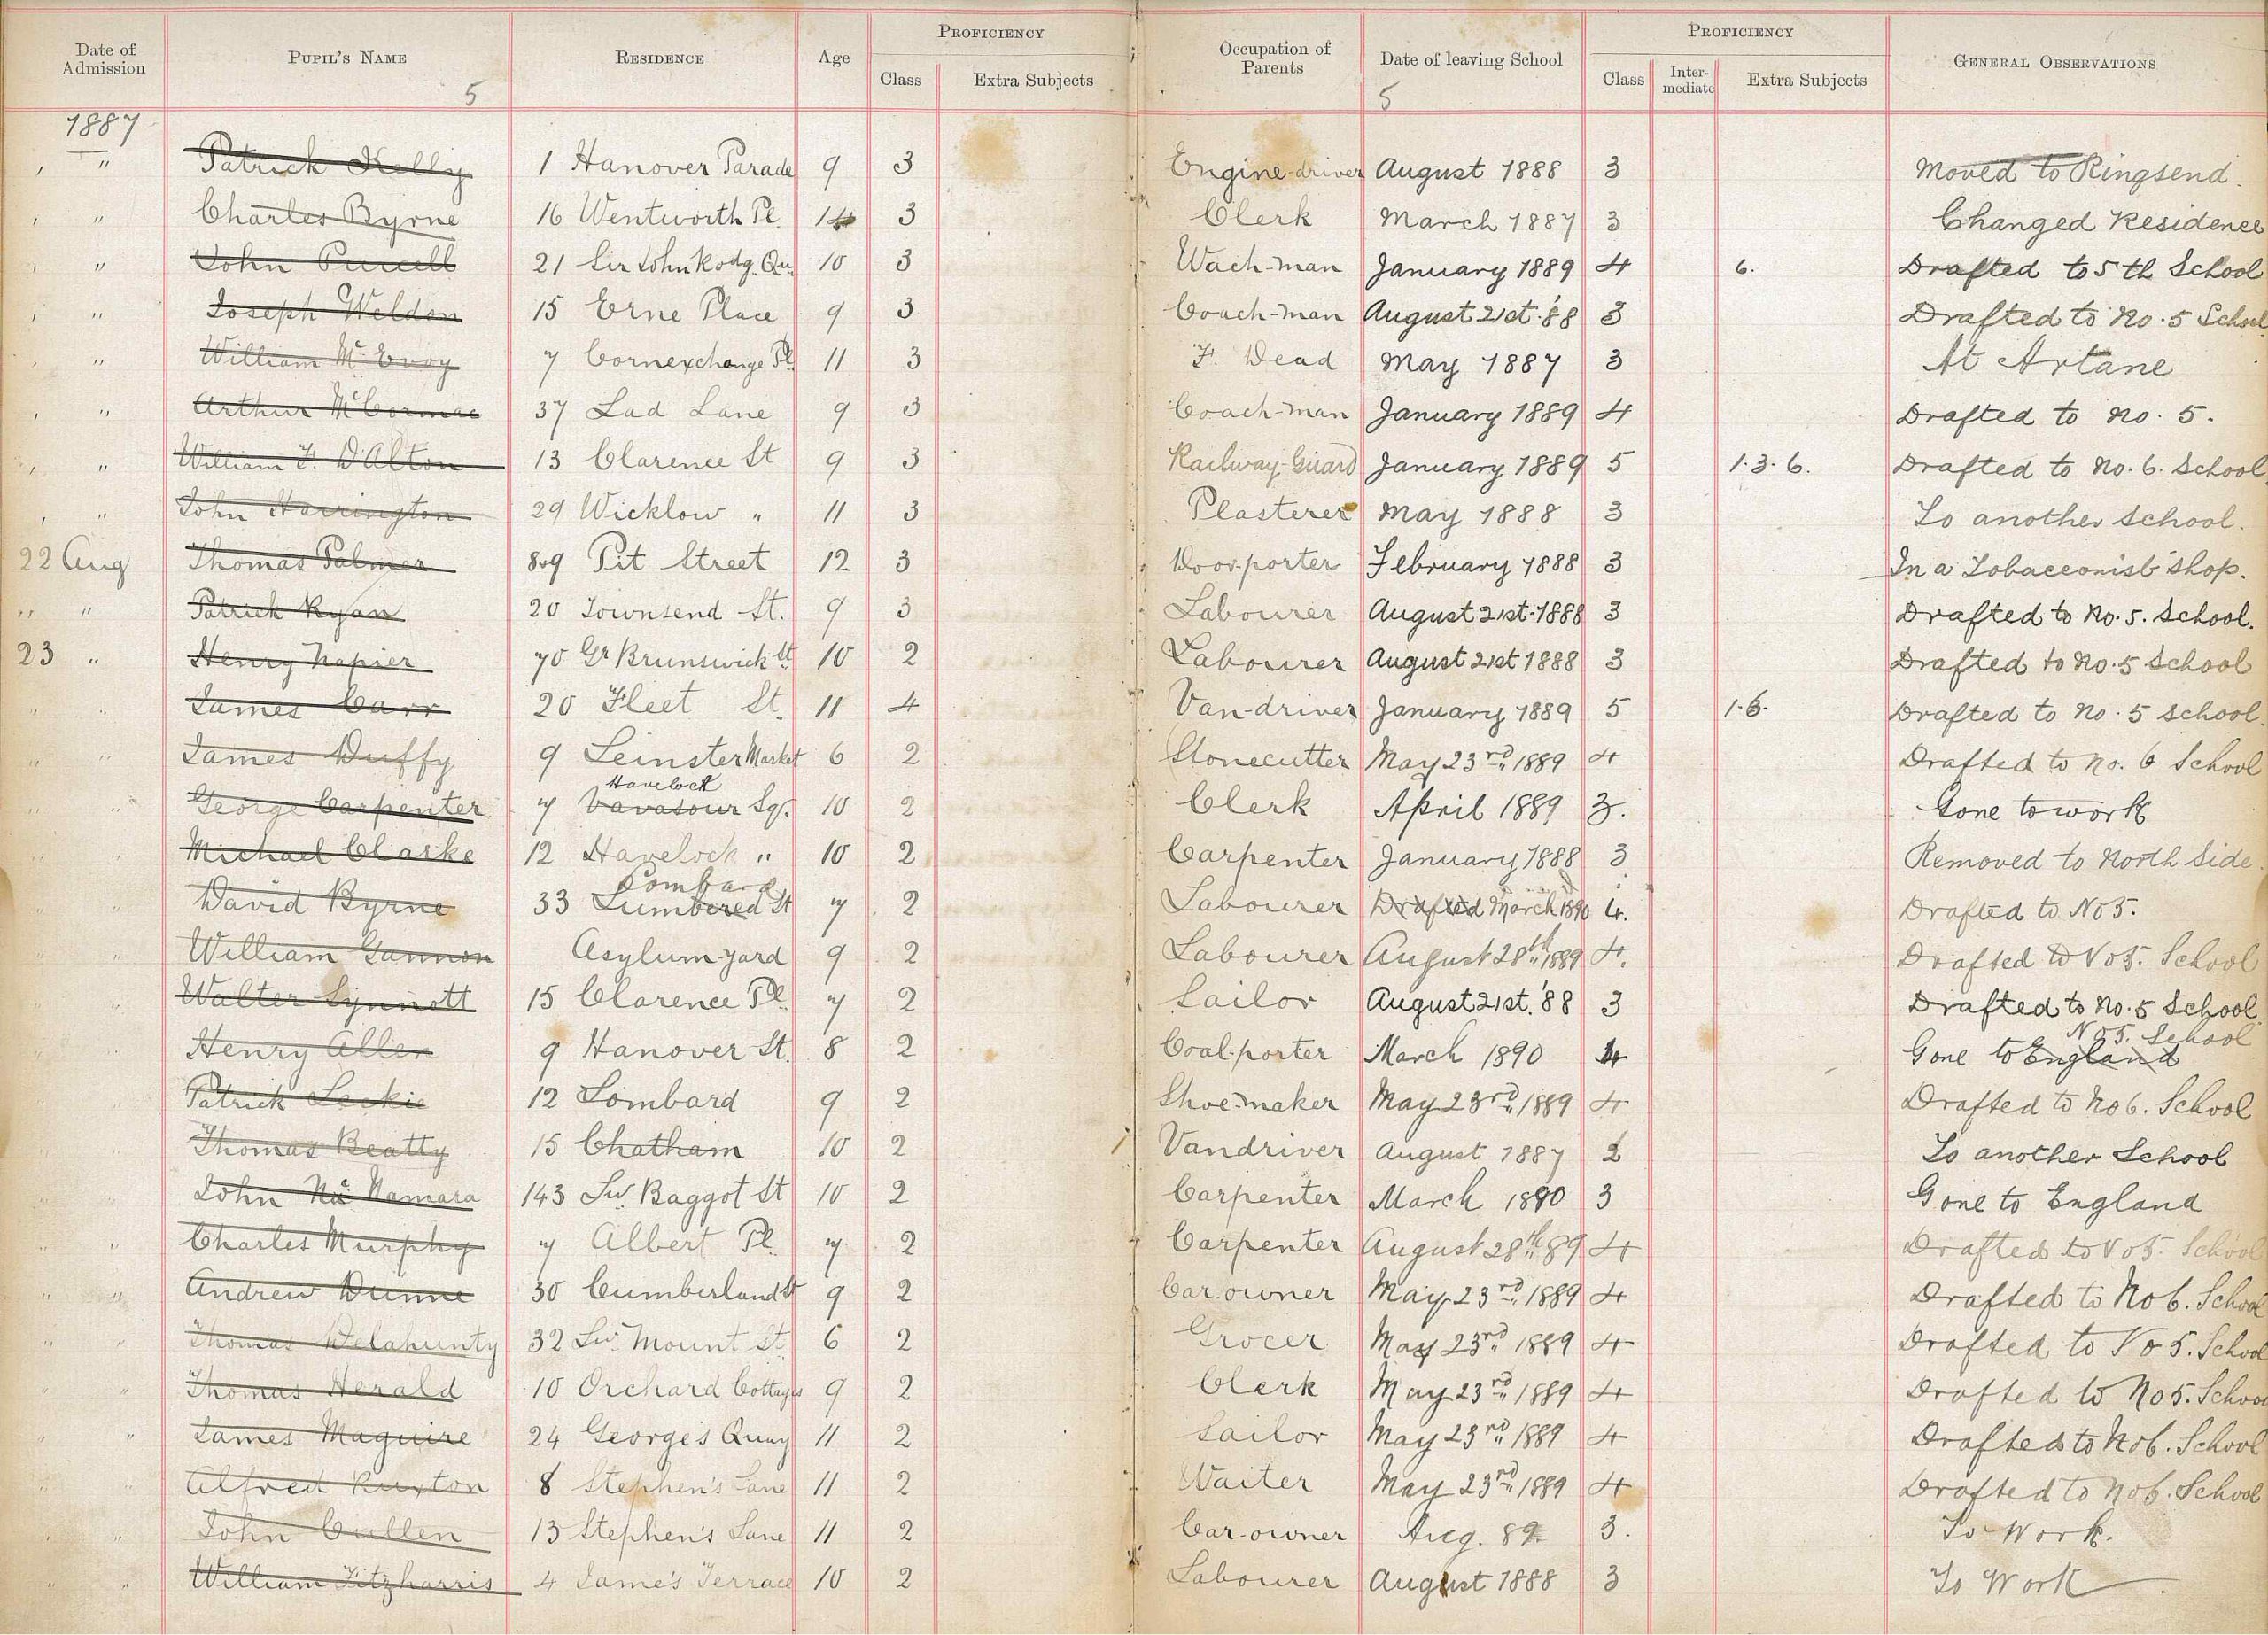 Date of Admission PUPIL'S NAME RESIDENCE Age PROFICIENCY Class Extra Subjects Occupation of Parents Date of leaving School PROFICIENCY Class Inter-mediate Extra Subjects GENERAL OBSERVATIONS
5 5
1887
, " Patrick Kelly 1 Hanover Parade 9 3 Engine-driver August 1888 3 Moved to Ringsend.
, " Charles Byrne 16 Wentworth Pl. 14 3 Clerk March 1887 3 Changed Residence
, " John Purcell 21 Sir John Rodg. Qu. 10 3 Wach-man January 1889 4 6. Drafted to 5th School
, " Joseph Weldon 15 Erne Place 9 3 Coach-man August 21st. '88 3 Drafted to No. 5 School
, " William McEvoy 7 Cornexchange Pl. 11 3 F. Dead May 1887 3 At Artane
, " Arthur McCormac 37 Lad Lane 9 3 Coach-man January 1889 4 Drafted to No. 5.
, " William F. D'Alton 13 Clarence St 9 3 Railway-Guard January 1889 5 1.3.6. Drafted to No. 6. School
, " John Harrington 29 Wicklow " 11 3 Plasterer May 1888 3 To another school.
22 Aug Thomas Palmer 8&9 Pit Street 12 3 Door-porter February 1888 3 In a Tobacconist shop.
" " Patrick Ryan 20 Townsend St. 9 3 Labourer August 21st. 1888 3 Drafted to No. 5. School.
23 " Henry Napier 70 Gr Brunswick St 10 2 Labourer August 21st 1888 3 Drafted to No. 5 School
" " James Carr 20 Fleet St. 11 4 Van-driver January 1889 5 1.6. Drafted to No. 5 School.
" " James Duffy 9 Leinster Market 6 2 Stonecutter May 23rd 1889 4 Drafted to No. 6 School
Havelock
" " George Carpenter 7 Vavasour Sq. 10 2 Clerk April 1889 3. Gone to work
" " Michael Clarke 12 Havelock " 10 2 Carpenter January 1888 3 Removed to North Side.
Lombard
" " David Byrne 33 Lumbered St 7 2 Labourer Drafted March 1890 4. Drafted to No 5.
" " William Gannon Asylum-yard 9 2 Labourer August 28th 1889 4. Drafted to No 5. School
" " Walter Synnott 15 Clarence Pl. 7 2 Sailor August 21st. '88 3 Drafted to No. 5 School
No 5. School
" " Henry Allen 9 Hanover St. 8 2 Coal-porter March 1890 4 Gone to England
" " Patrick Leckie 12 Lombard 9 2 Shoe-maker May 23rd 1889 4 Drafted to No 6. School
" " Thomas Beatty 15 Chatham 10 2 Vandriver August 1887 2 To another School
" " John McNamara 143 Lwr. Baggot St 10 2 Carpenter March 1890 3 Gone to England
" " Charles Murphy 7 Albert Pl. 7 2 Carpenter August 28th 89 4 Drafted to No 5. School
" " Andrew Dunne 30 Cumberland St 9 2 Car-owner May 23rd 1889 4 Drafted to No 6. School
" " Thomas Delahunty 32 Lwr Mount St. 6 2 Grocer May 23rd 1889 4 Drafted to No 5. School
" " Thomas Herald 10 Orchard Cottages 9 2 Clerk May 23rd 1889 4 Drafted to No 5. School
" " James Maguire 24 George's Quay 11 2 Sailor May 23rd 1889 4 Drafted to No 6. School
" " Alfred Ruxton 8 Stephen's Lane 11 2 Waiter May 23rd 1889 4 Drafted to No 6. School
" " John Cullen 13 Stephen's Lane 11 2 Car-owner Aug. 89. 3. To Work.
" " William Fitzharris 4 James's Terrace 10 2 Labourer August 1888 3 To Work